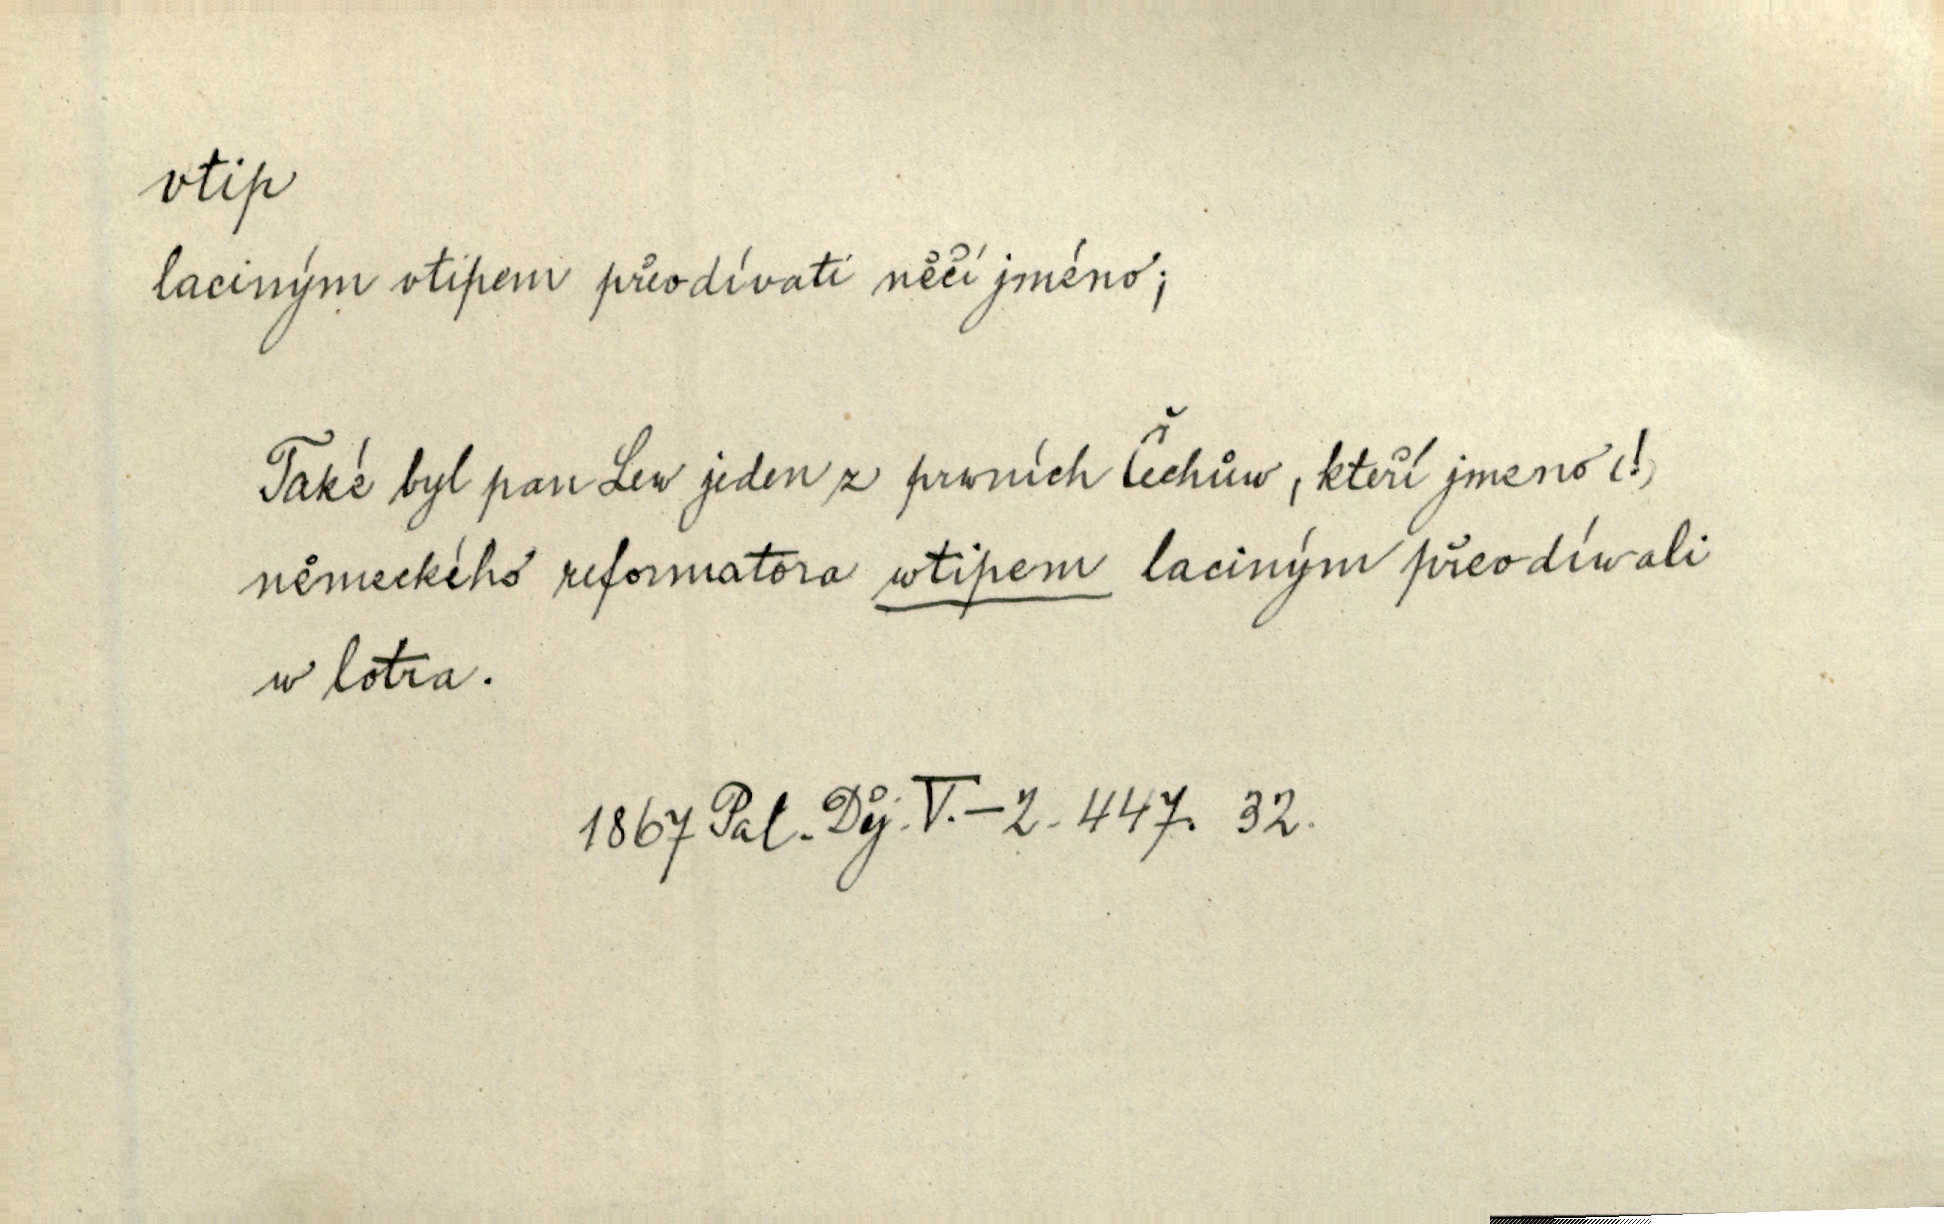 vtip
laciným vtipem přeodívati něčí jméno;
Také byl pan Lew jeden z prwních Čechůw, kteří jmeno (!)
německého reformatora wtipem laciným přeodíwali
w lotra.
1867 Pal. Děj. V.-2. 447. 32.